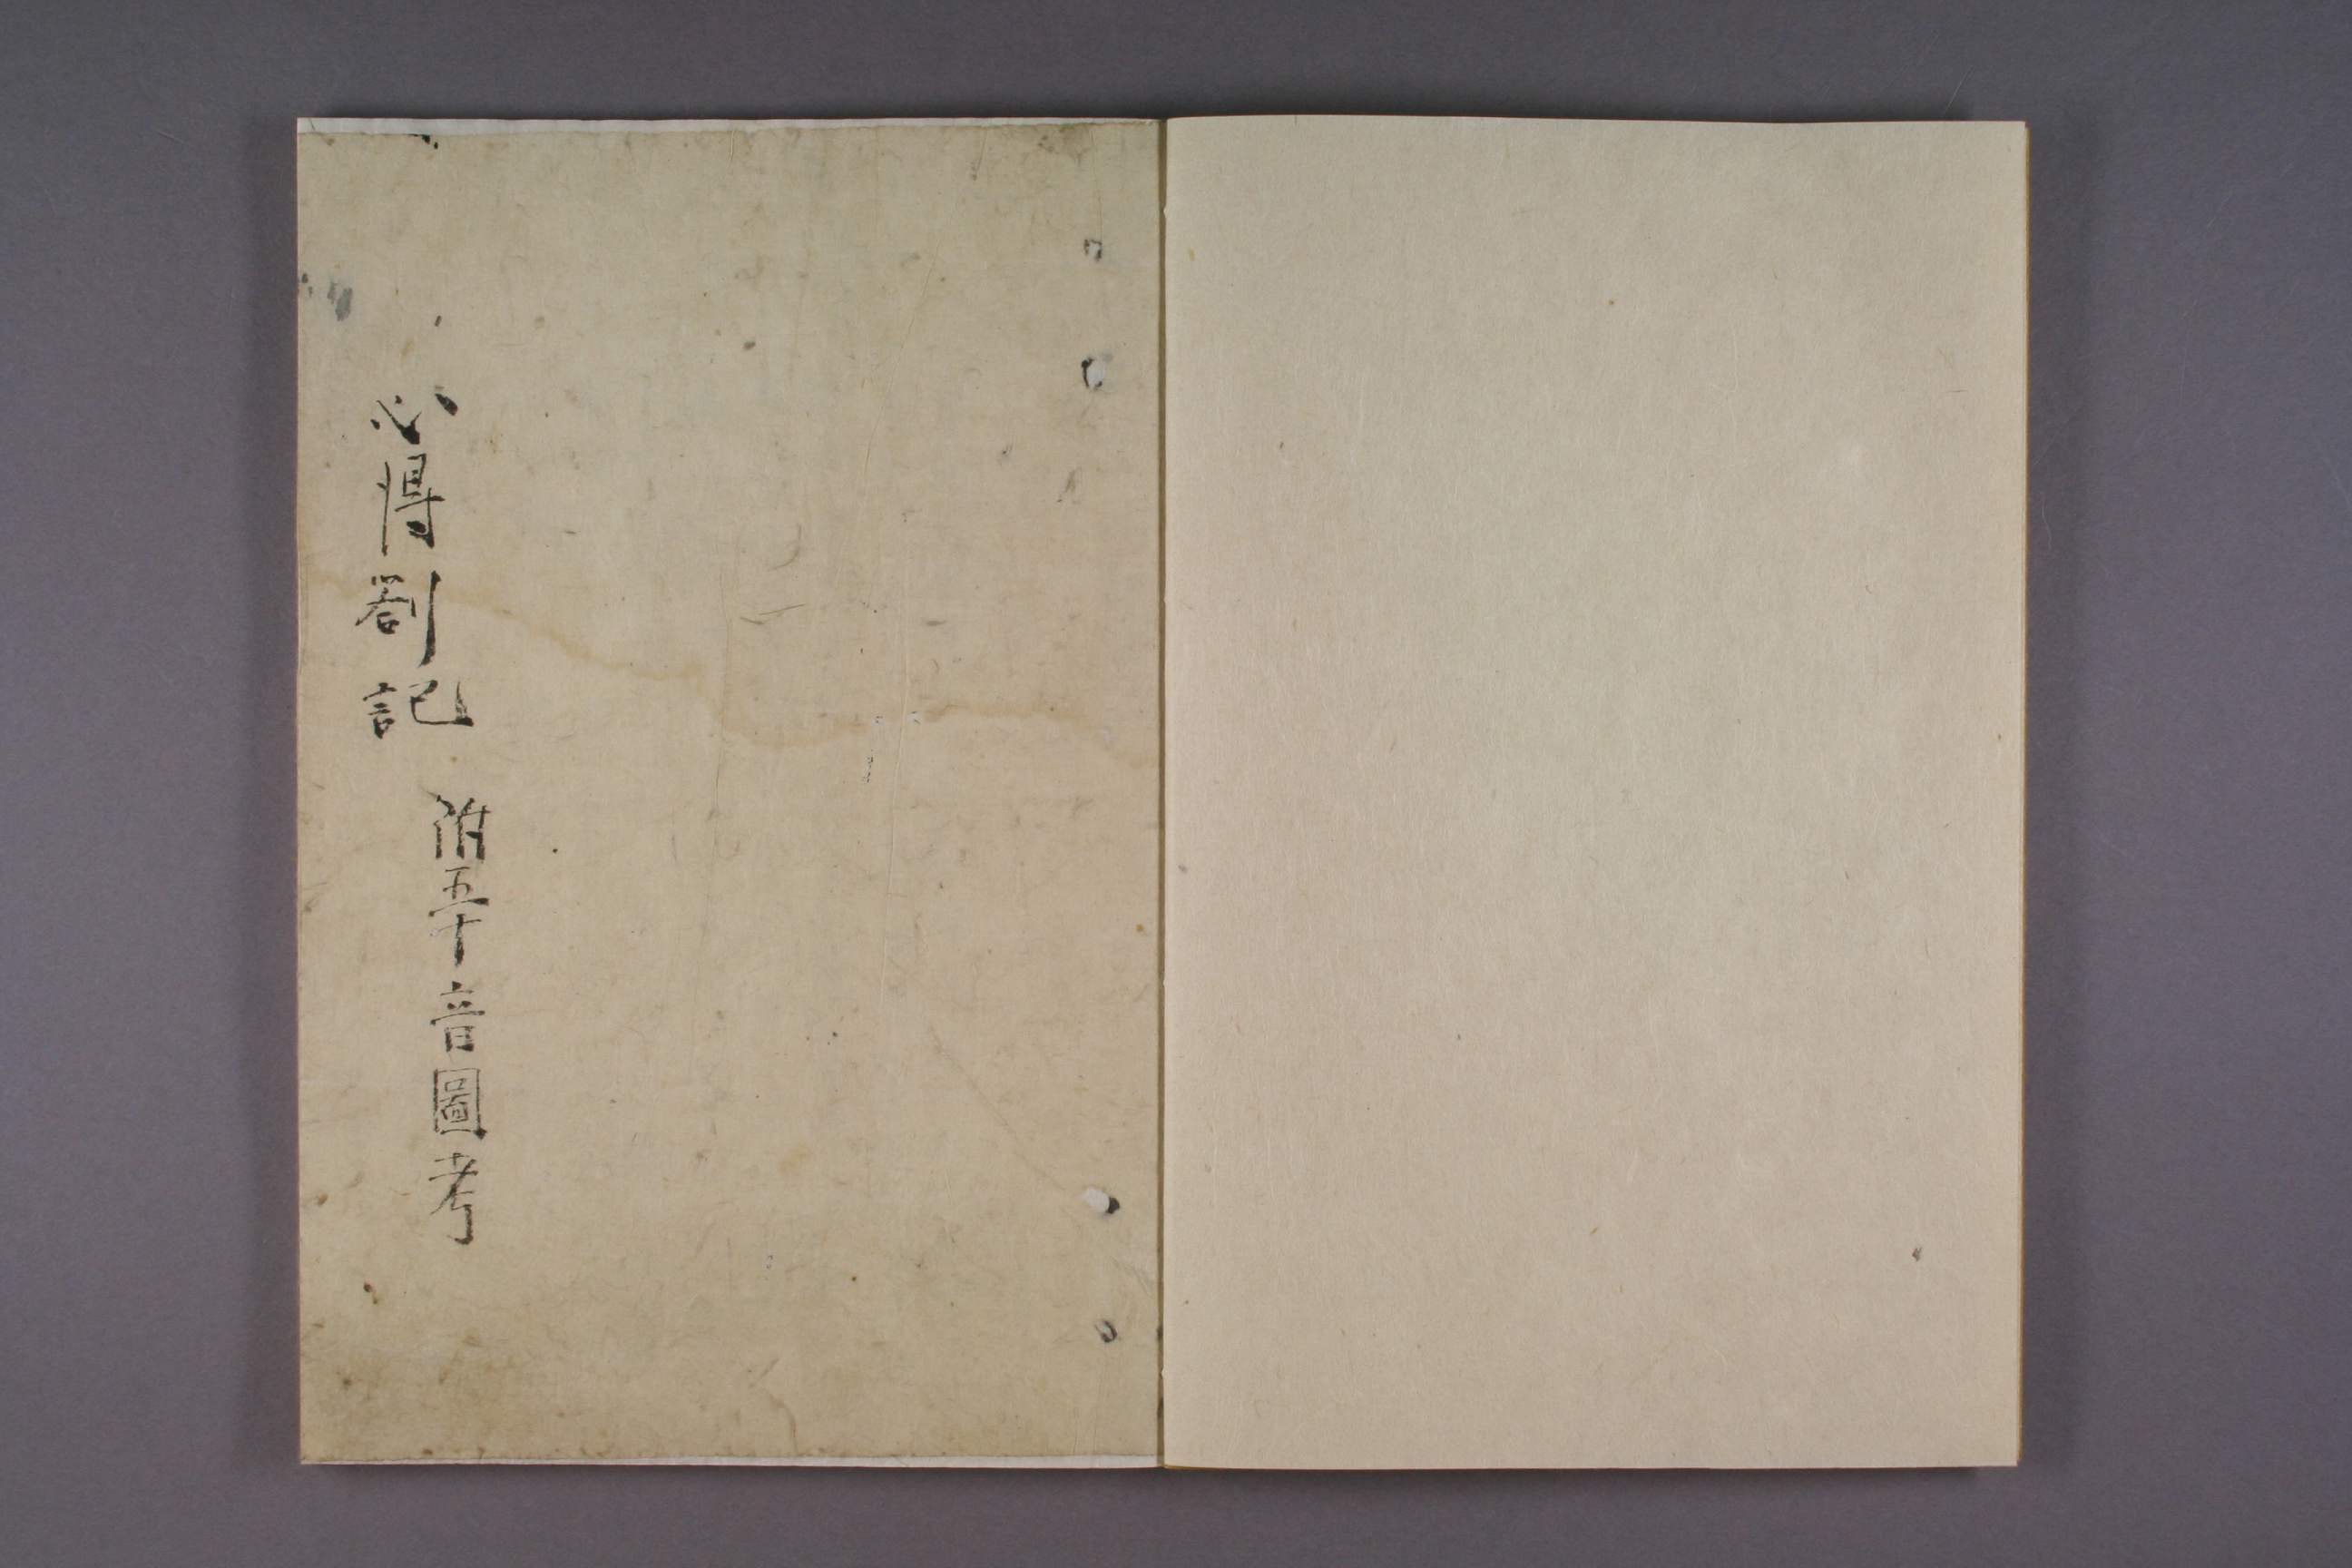 心得劄記
附五十音圖考